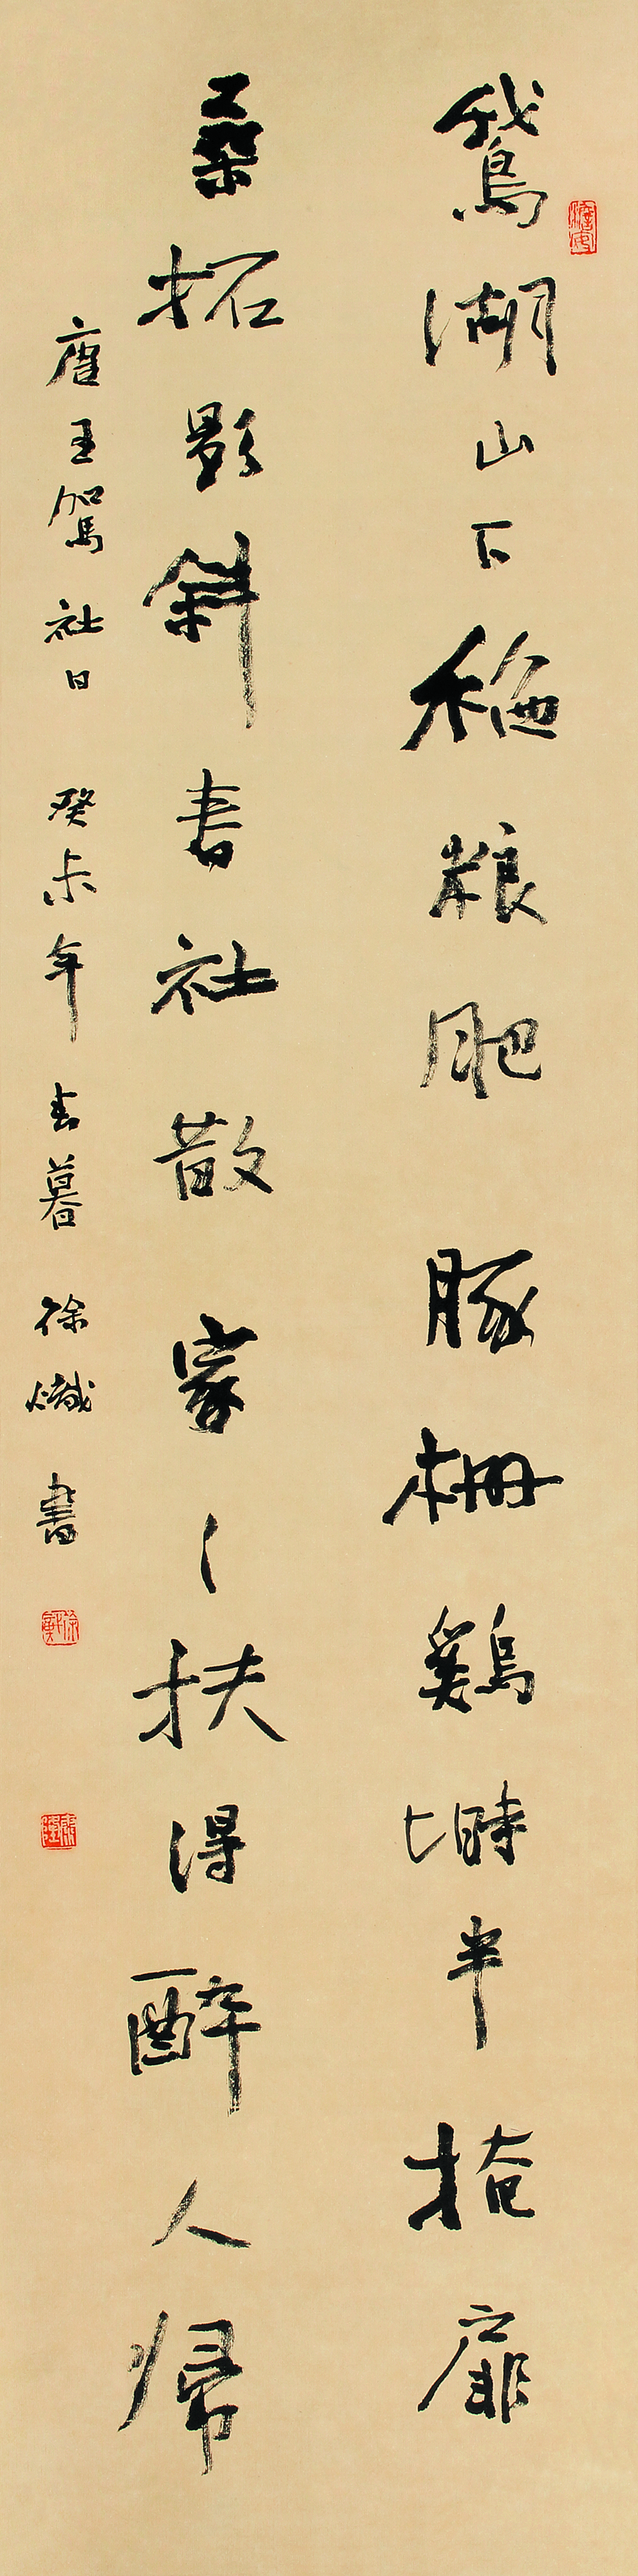 鵞湖山下稻粮肥豚柵鷄塒半掩扉
桑拓影斜春社散家〻扶得醉人歸
唐王駕社日癸未年春暮徐熾書